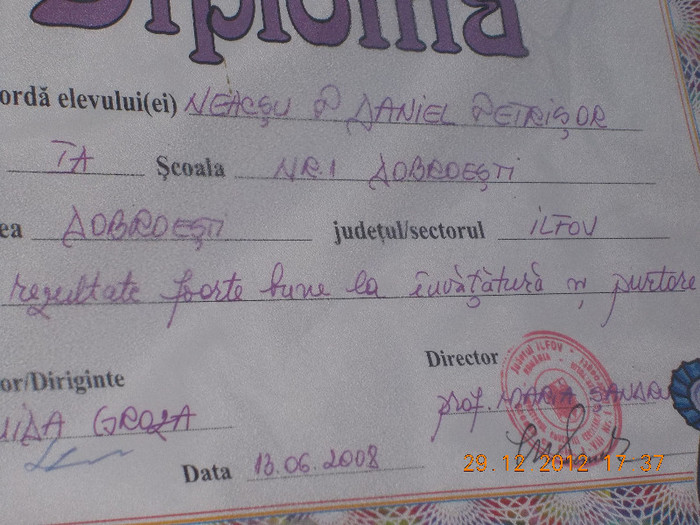 Diploma
ordă elevului(ei) NEACȘU P DANIEL PETRIȘOR
TA Școala NR.1 DOBROEȘTI
ea DOBROEȘTI județul/sectorul ILFOV
rezultate foarte bune la învățătură și purtare
Director
or/Diriginte
prof. MARIA SANDU
GROZA
Data 13.06.2008
29.12.2012 17:37